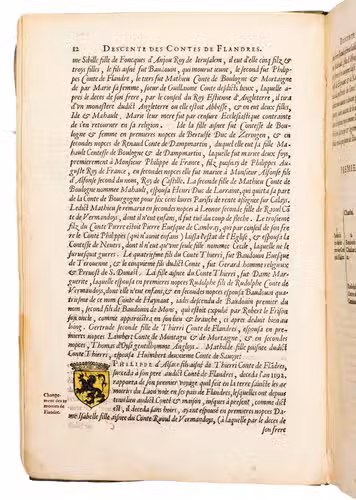 12 DESCENTE DES CONTES DE FLANDRES.
me Sibille fille de Foucques d'Anjou Roy de Ierusalem, il eut d'elle cinq filz &
trois filles, le filz aisné fut Baudouin, qui mourut ieune, le second fut Philip-
pes Conte de Flandre, le tiers fut Mathieu Conte de Boulogne & Mortaigne
de par Marie sa femme, sœur de Guillaume Conte desdicts lieux, laquelle a-
pres le deces de son frere, par le conseil du Roy Estienne d'Angleterre, il tira
d'vn monastere dudict Angleterre ou elle estoit Abbesse, & en eut deux filles,
Ide & Mahault, Marie leur mere fut par censure Ecclesiastique contrainte
de s'en retourner en sa religion. Ide sa fille aisnée fut Contesse de Bou-
logne & femme en premieres nopces de Bertulfe Duc de Zeringen, & en
secondes nopces de Renaud Conte de Dampmartin, duquel elle eut sa fille Ma-
hault Contesse de Boulogne & de Dampmartin, laquelle fut mariée deux foys,
premierement à Monsieur Philippe de France, filz puisnay de Philippes Au-
guste Roy de France, en secondes nopces elle fut mariée à Monsieur Alfonse filz
d'Alfonse second du nom, Roy de Castille. La seconde fille de Mathieu Conte de
Boulogne nommée Mahault, espousa Henri Duc de Lorraine, qui quicta sa part
de la Conté de Bourgogne pour six cens liures Parisis de rente assignée sur Calays.
Ledict Mathieu se remaria en secondes nopces à Leonor seconde fille de Raoul Cõ
te de Vermandoys, dont il n'eut enfans, il fut tué du coup de flesche. Le troisieme
filz du Conte Pierre estoit Pierre Euesque de Cambray, qui par conseil de son fre
re le Conte Philippes (qui n'auoit enfans) laissa l'estat de l'Eglise, & espousa la
Contesse de Neuers, dont il n'eut qu'vne seule fille nommée Cecile, laquelle ne le
suruesquit guerre. Le quatrieme filz du Conte Thierri, fut Baudouin Euesque
de Terouenne, & le cinquieme filz dudict Conte, fut Gerard homme religieux
& Preuost de S. Donact. La fille aisnée du Conte Thierri, fut Dame Mar-
guerite, laquelle espousa en premieres nopces Rudolphe filz de Rudolphe Conte de
Vermandoys, dont elle n'eut enfans, & en secondes nopces espousa Baudouin qua-
triesme de ce nom Conte de Haynaut, iadis descendu de Baudouin premier du
nom, second filz Baudouin de Mons, qui estoit expulsé par Robert le Frison
son oncle, comme apparoistra en son lieu en brauche, et apres deduit bien au
long. Gertrude seconde fille de Thierri Conte de Flandres, espousa en pre-
mieres nopces Lambert Conte de Montagu & de Mortagne, & en secondes
nopces, Thomas d'Osse gentilhomme Angloys. Mathilde fille puisnée dudict
Conte Thierri, espousa Humbert deuxieme Conte de Sauoye.
PHILIPPE d'Alsace filz aisné de Thierri Conte de Flãdres,
succeda à son pere audict Conté de Flandres, deceda l'an 1192.
rapporta de son premier voyage qu'il feit en la terre saincte les ar-
moiries du Lion noir en ses pais de Flandres, lesquelles ont depuis
tous lieu audict Conté & maison, iusques à present, comme dict
est, il deceda sans hoirs, ayant espousé en premieres nopces Da-
me Isabelle fille aisnée du Conte Raoul de Vermandoys, à laquelle par le deces de
son frere
Change-
ment des ar
moiries de
Flandres.